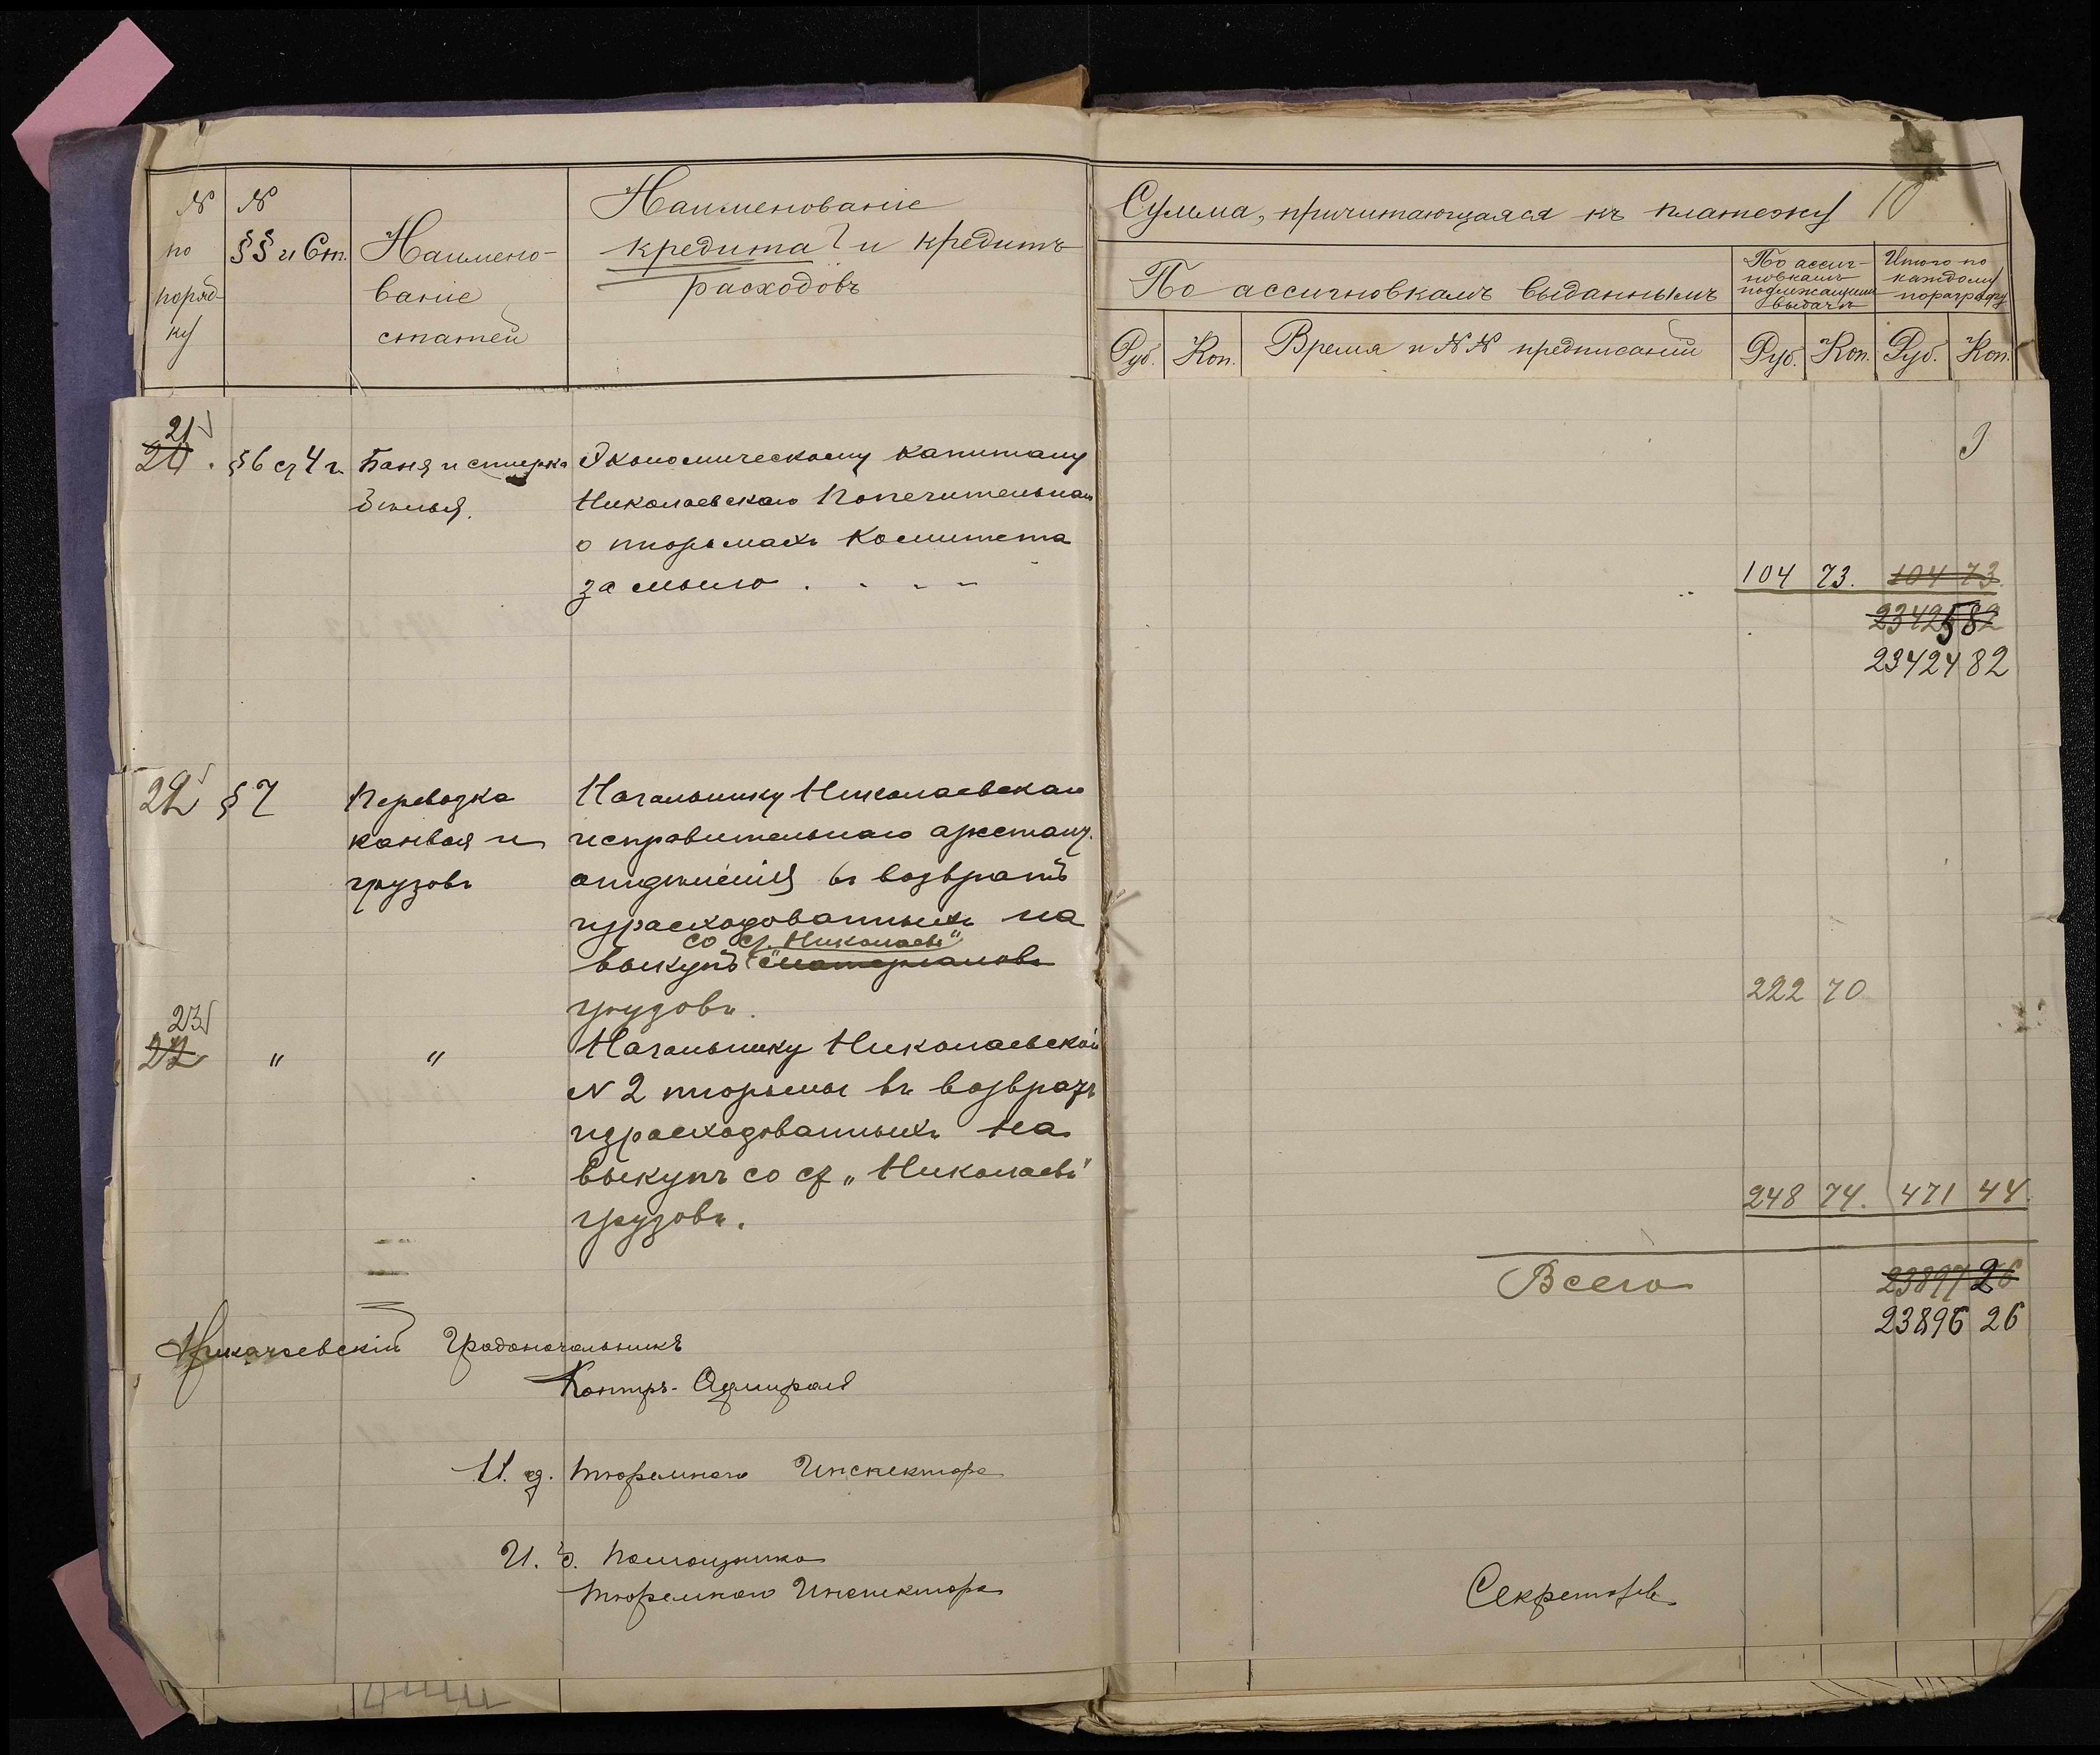 № по поряд-ку
№ §§ и Ст.
Наимено-
ваніе
статей
Наименованіе
кредита и кредит
расходовъ
Сумма, причитающаяся къ платежу 10
По ассигновкамъ выданнымъ
По ассиг-
новкамъ
подлежащимъ
выдачѣ
Итого по
каждому
параграфу
Руб. Коп. Время и №№ предписаній Руб. Коп. Руб. Коп.
21
20. §6 ст 4 г. Баня и стирка Экономическому капиталу
бѣлья. Николаевскаго Попечительнаго
о тюрьмахъ Комитета
за мыло . . . . 104 73. 104 73.
23425 82
23424 82
22 § 7 Перевозка Начальнику Николаевскаго
конвоя и исправительнаго арестант.
грузовъ отдѣленія въ возвратъ
израсходованныхъ на
со ст. Николаевъ"
выкупъ матеріаловъ
грузовъ. 222 70
23
22 " " Начальнику Николаевской
№ 2 тюрьмы въ возвратъ
израсходованныхъ на
выкупъ со ст „Николаевъ"
грузовъ. 248 74. 471 44.
Всего 23897 26
23896 26
Николаевскій Градоначальникъ
Контръ-Адмиралъ
И. д. Тюремнаго Инспектора
И. д. Помощника
Тюремнаго Инспектора Секретарь